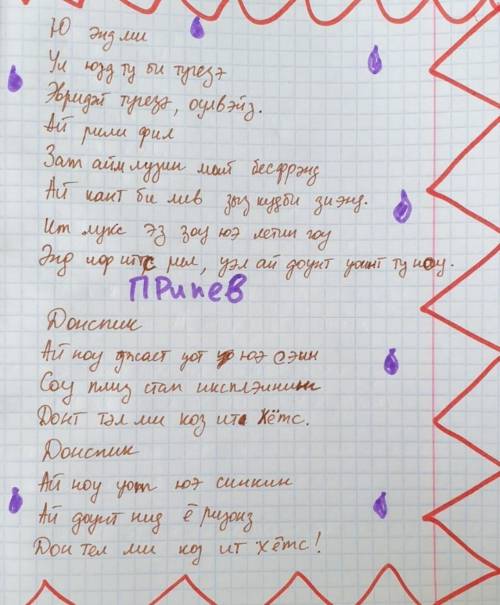 Ю энд ми
Ул юзд ту би тугезэ
Эвридэй тугезэ, оулвэйз.
Ай рили фил
Зат айм лузин май бесфрэнд
Ай кант би лив зыз кудби зи энд.
Ит лукс эз зоу юэ летин гоу
Энд иф итс рил, уэл ай доунт уонт ту ноу.
ПРипев
Донспик
Ай ноу джаст уот юэ сэин
Соу плиз стап иксплэинин
Донт тэл ми коз ит хётс.
Донспик
Ай ноу уот юэ синкин
Ай доунт нид ё ризонз
Дон тел ми коз ит хётс!